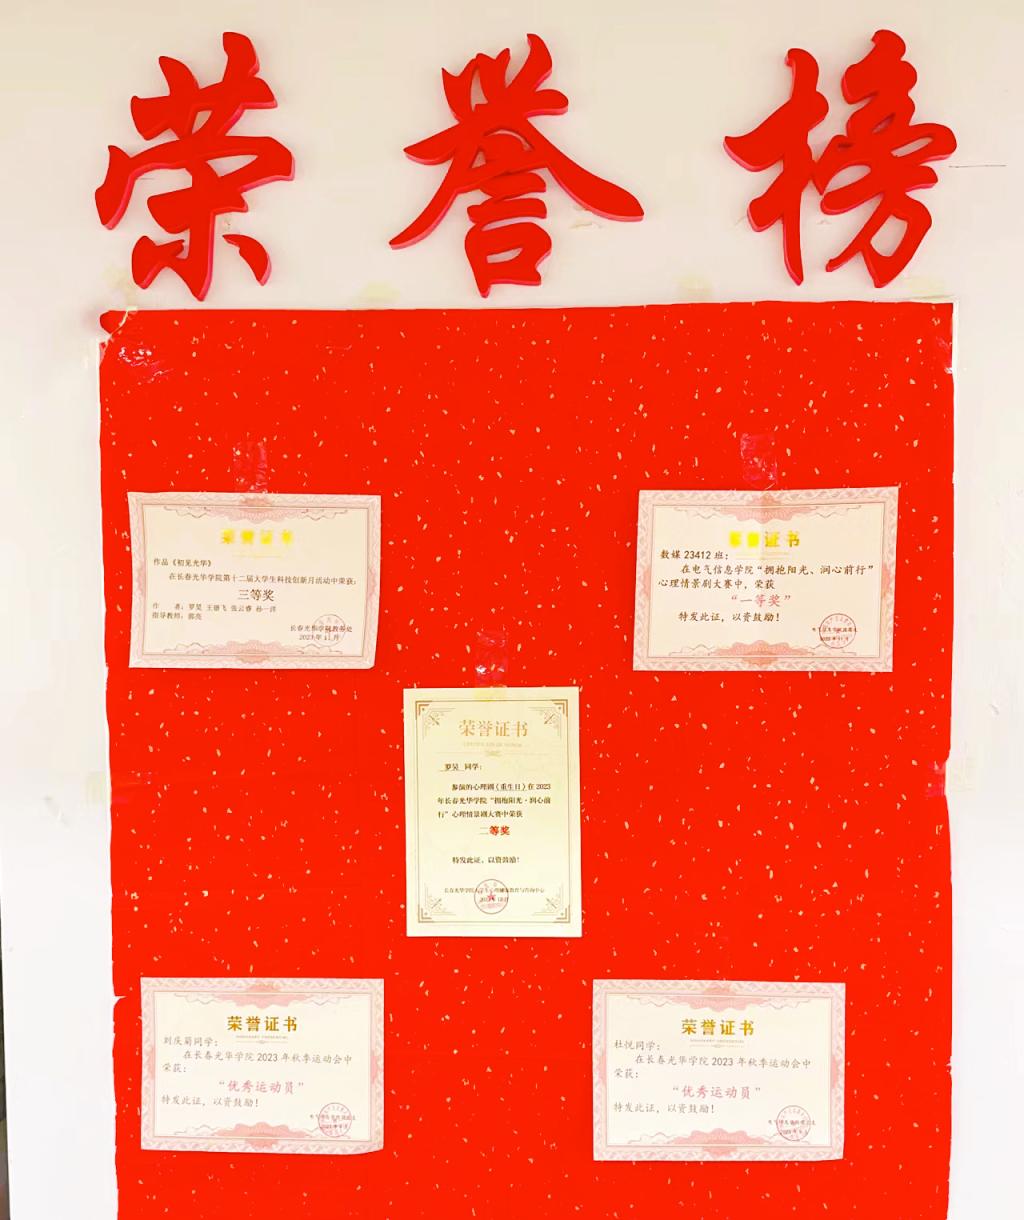 荣誉榜
荣誉证书
作品《初见光华》
在长春光华学院第十二届大学生科技创新月活动中荣获:
三等奖
作　者: 罗昊 王珊飞 张云睿 孙一
指导教师: 郭亮
长春光华学院教务处
2023年11月
荣誉证书
数媒 23412 班:
在电气信息学院“拥抱阳光、润心前行”
心理情景剧大赛中, 荣获
“一等奖”
特发此证, 以资鼓励!
荣誉证书
罗昊 同学:
参演的心理剧《重生日》在 2023
年长春光华学院“拥抱阳光·润心前
行”心理情景剧大赛中荣获
二等奖
特发此证, 以资鼓励!
长春光华学院大学生心理健康教育与咨询中心
荣誉证书
刘庆菊同学:
在长春光华学院 2023 年秋季运动会中
荣获:
“优秀运动员”
特发此证, 以资鼓励!
荣誉证书
杜悦同学:
在长春光华学院 2023 年秋季运动会中
荣获:
“优秀运动员”
特发此证, 以资鼓励!